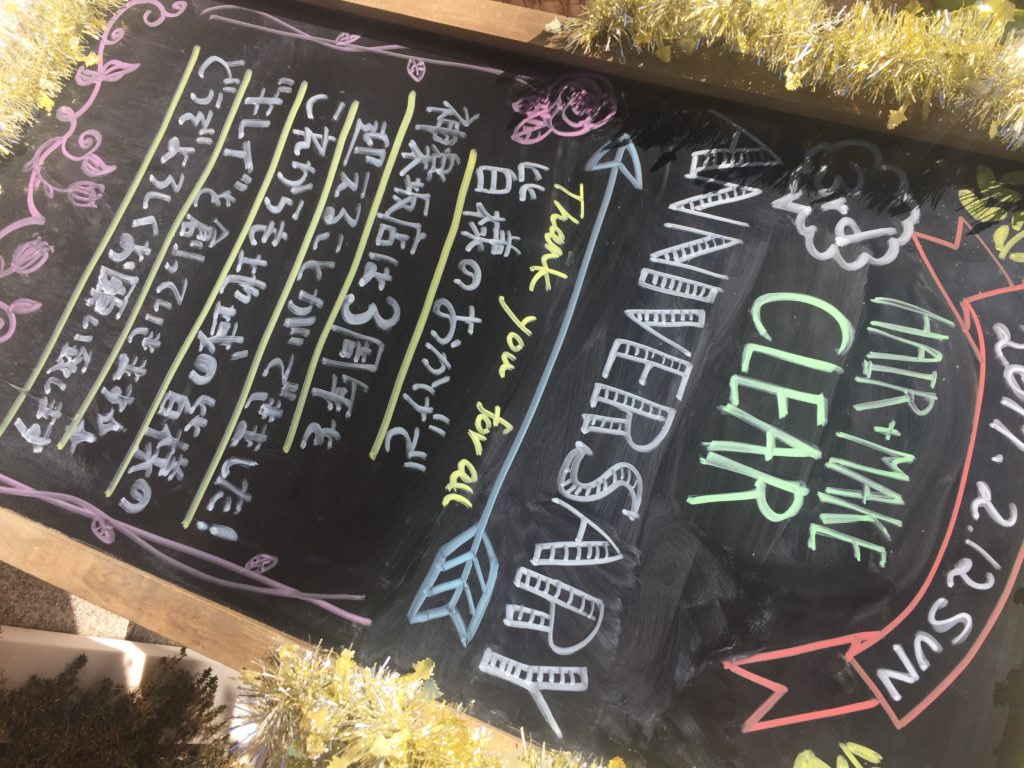 2017. 2.12 SUN
HAIR + MAKE
CLEAR
3rd
ANNIVERSARY
Thank you for all
皆様のおかげで
神楽坂店は3周年を
迎えることができました!
これからも地域の皆様の
"キレイ"を創っていきます
どうぞよろしくお願い致します